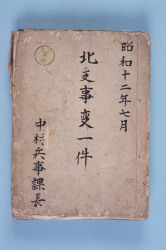 昭和十二年七月
北支事變一件
中村兵事課長